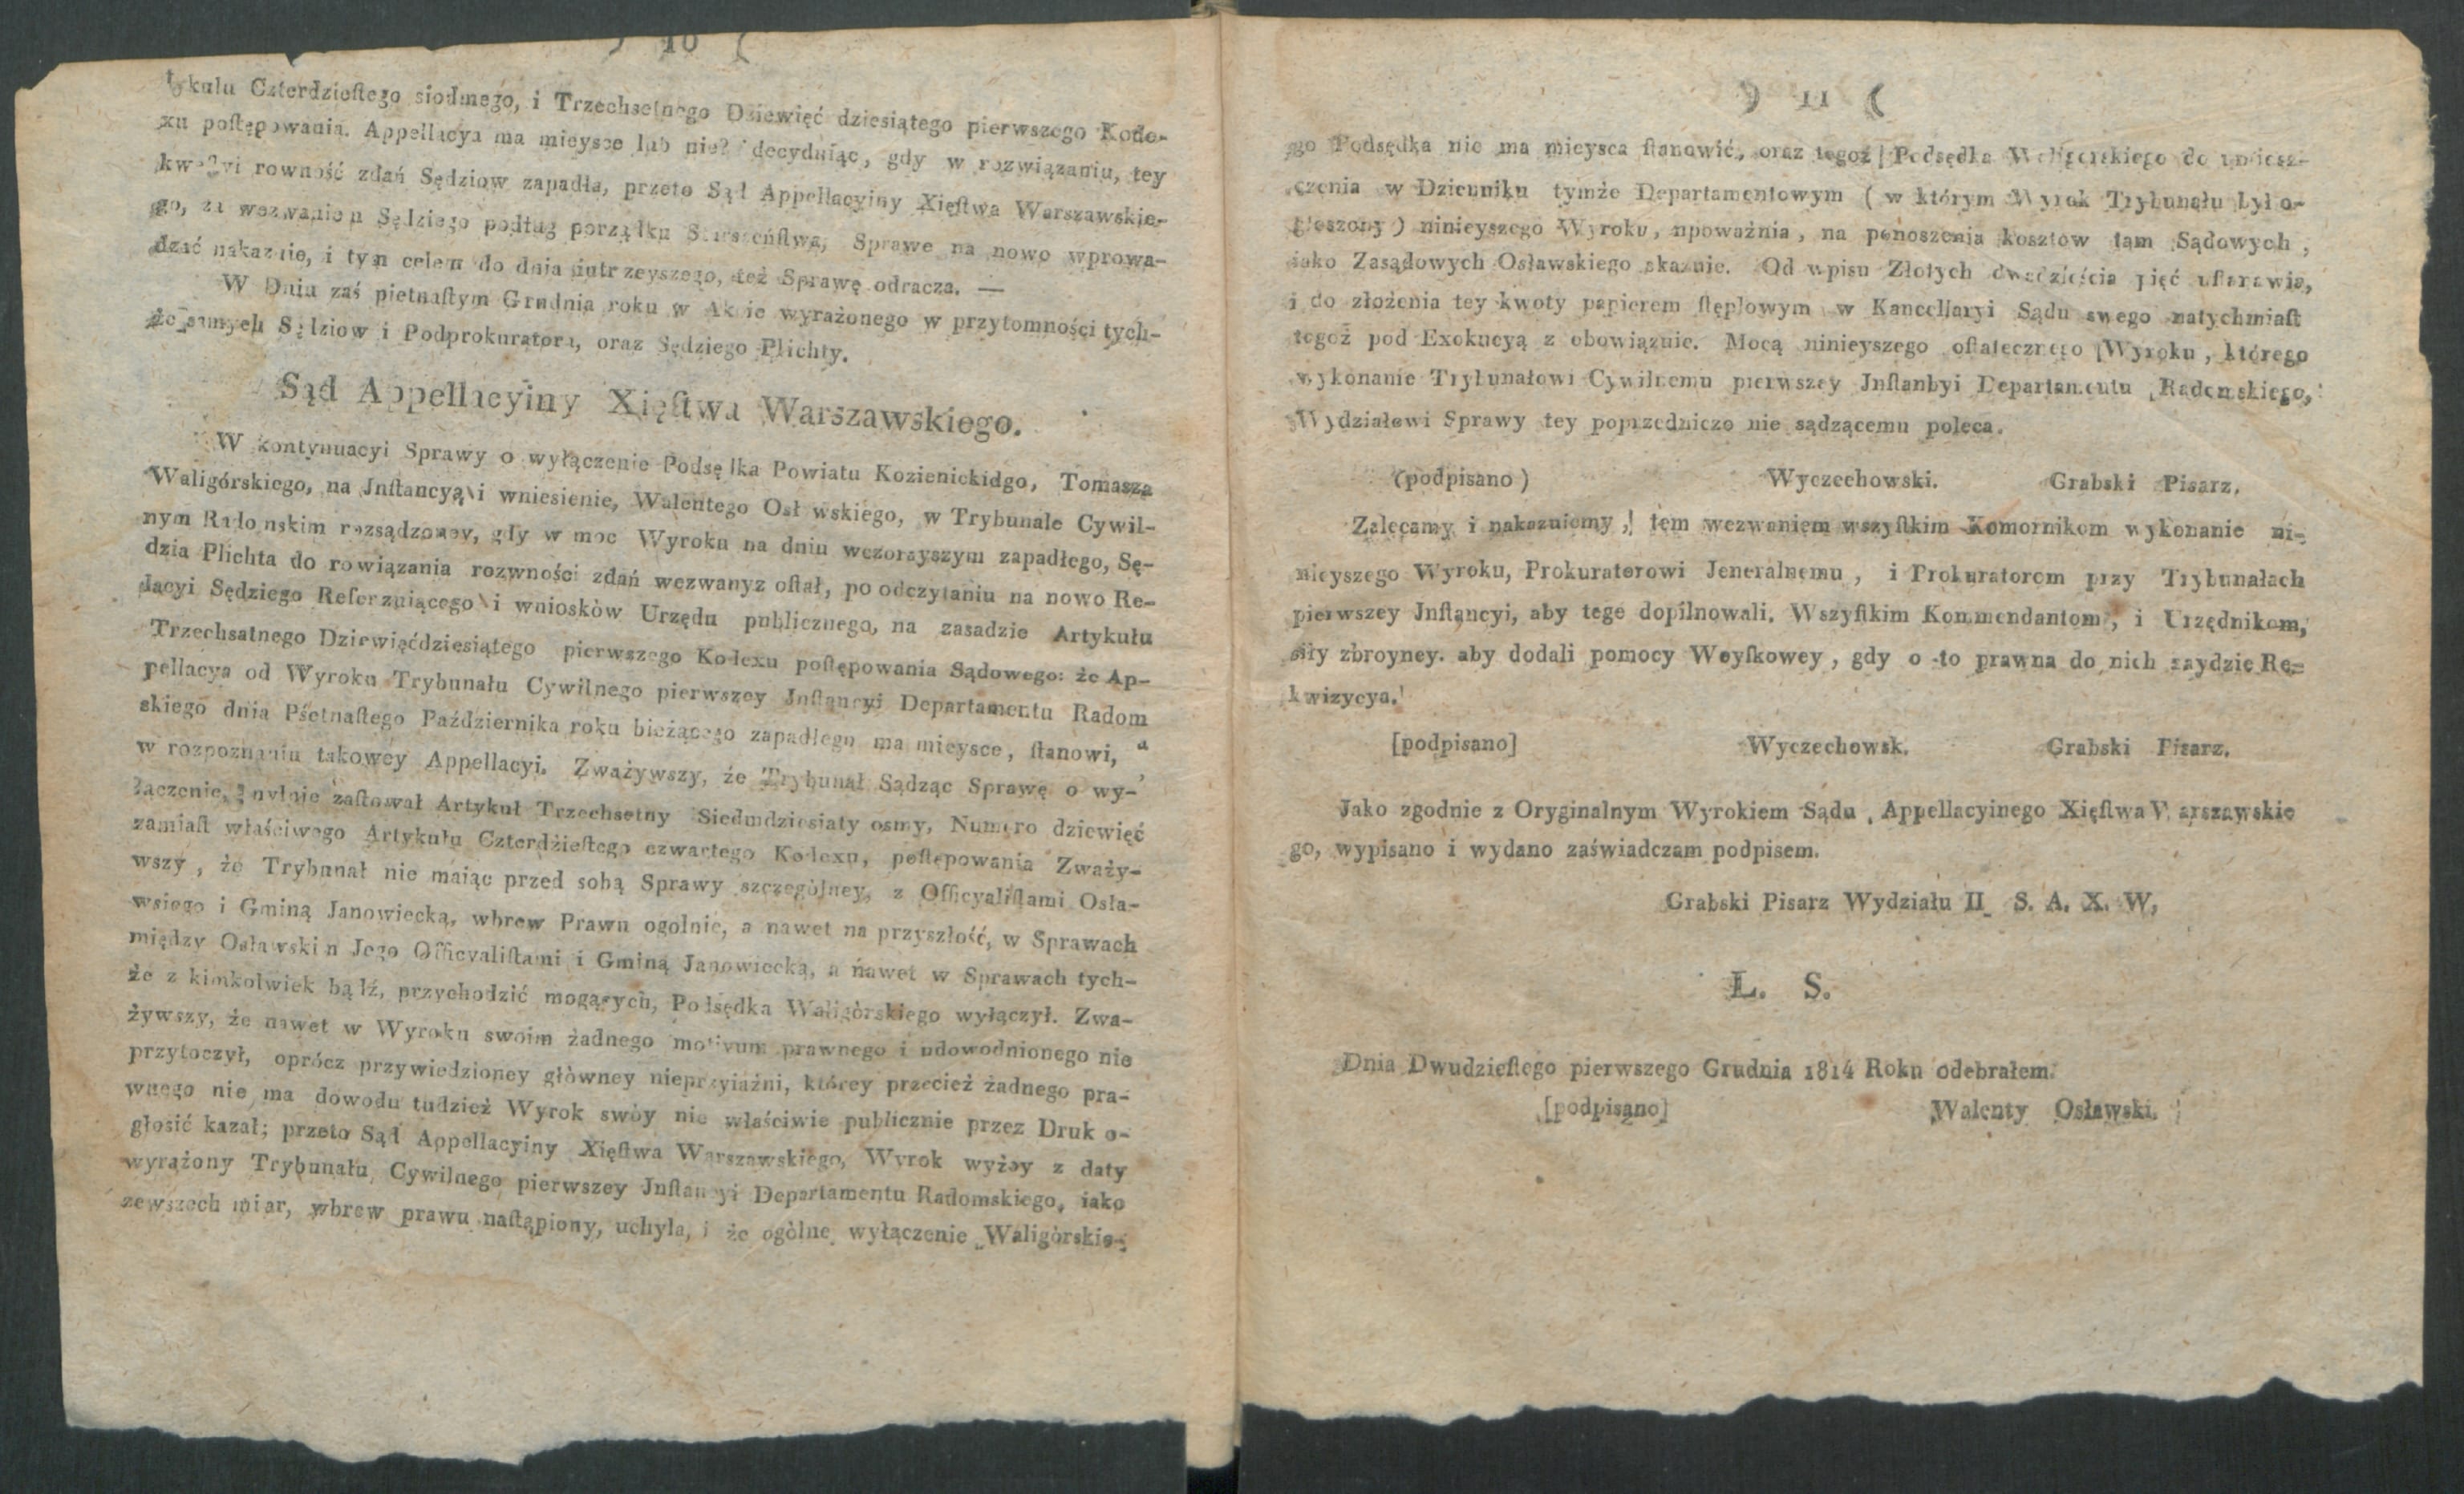 ) 10 (
tykułu Czterdzieſtego siodmego, i Trzechsetnego Dziewięć dziesiątego pierwszego Kode-
xu poſtępowania. Appellacya ma mieysce lub nie? decyduiąc, gdy w rozwiązaniu, tey
kweſtyi rowność zdań Sędziow zapadła, przeto Sąd Appellacyiny Xięſtwa Warszawskie-
go, za wezwaniem Sędziego podług porządku Starszeńſtwa, Sprawe na nowo wprowa-
dzać nakazuie, i tym celem do dnia iutrzeyszego, też Sprawę odracza. —
W Dniu zaś pietnaſtym Grudnia roku w Akcie wyrażonego w przytomności tych-
że samych Sędziow i Podprokuratora, oraz Sędziego Plichty.
Sąd Appellacyiny Xięſtwa Warszawskiego.
W kontynuacyi Sprawy o wyłączenie Podsędka Powiatu Kozienickidgo, Tomasza
Waligórskiego, na Jnſtancyą i wniesienie, Walentego Osł wskiego, w Trybunale Cywil-
nym Radomskim rozsądzoney, gdy w moc Wyroku na dniu wczorayszym zapadłego, Sę-
dzia Plichta do rowiązania rozwności zdań wezwanyz oſtał, po odczytaniu na nowo Re-
lacyi Sędziego Referuiącego i wnioskòw Urzędu publicznego, na zasadzie Artykułu
Trzechsatnego Dziewięćdziesiątego pierwszego Kodexu poſtępowania Sądowego: że Ap-
pellacya od Wyroku Trybunału Cywilnego pierwszey Jnſtancyi Departamentu Radom
skiego dnia Pśetnaſtego Października roku bieżącego zapadłego ma mieysce, ſtanowi, a
w rozpoznaniu takowey Appellacyi. Zważywszy, że Trybunał Sądząc Sprawę o wy-
łączenie, mylnie zaſtował Artykuł Trzechsetny Siedmdziesiaty osmy, Numero dziewięć
zamiaſt właściwego Artykułu Czterdżieſtego czwartego Kodexu, poſtępowania Zważy-
wszy, że Trybunał nie maiąc przed sobą Sprawy szczegòlney, z Officyaliſtami Osła-
wsiego i Gminą Janowiecką, wbrew Prawu ogolnie, a nawet na przyszłość, w Sprawach
między Osławskim Jego Officyaliſtami i Gminą Janowiecką, a nawet w Sprawach tych-
że z kimkolwiek bądź, przychodzić mogących, Podsędka Waligòrskiego wyłączył. Zwa-
żywszy, że nawet w Wyroku swoim żadnego motivum prawnego i udowodnionego nie
przytoczył, oprócz przywiedzioney głòwney nieprzyiaźni, którey przecież żadnego pra-
wnego nie ma dowodu tudzież Wyrok swòy nie właściwie publicznie przez Druk o-
głosić kazał; przeto Sąd Appellacyiny Xięſtwa Warszawskiego, Wyrok wyżey z daty
wyrażony Trybunału Cywilnego pierwszey Jnſtancyi Departamentu Radomskiego, iako
zewszech miar, wbrew prawu naſtąpiony, uchyla, i że ogòlne wyłączenie Waligòrskie-
) 11 (
go Podsędka nie ma mieysca ſtanowić, oraz tegoż Podsędka Waligorskiego do umiesz-
czenia w Dzienniku tymże Departamentowym ( w którym Wyrok Trybunału był o-
głoszony ) ninieyszego Wyroku, upoważnia, na ponoszenia kosztow tam Sądowych,
iako Zasądowych Osławskiego skazuie. Od wpisu Złotych dwadzieścia pięć uſtanawia,
i do złożenia tey kwoty papierem ſtęplowym w Kancellaryi Sądu swego natychmiaſt
tegoż pod Exekucyą z obowiązuie. Mocą ninieyszego oſtatecznego Wyroku, którego
wykonanie Trybunałowi Cywilnemu pierwszey Jnſtanbyi Departamentu Radomskiego,
Wydziałowi Sprawy tey poprzedniczo nie sądzącemu poleca.
(podpisano) Wyczechowski. Grabski Pisarz.
Zalecamy i nakazuiemy, tem wezwaniem wszyſtkim Komornikom wykonanie ni-
nieyszego Wyroku, Prokuratorowi Jeneralnemu, i Prokuratorom przy Trybunałach
pierwszey Jnſtancyi, aby tege dopilnowali. Wszyſtkim Kommendantom, i Urzędnikom,
siły zbroyney. aby dodali pomocy Woyſkowey, gdy o to prawna do nich zaydzie Re-
kwizycya.
[podpisano] Wyczechowsk. Grabski Pisarz.
Jako zgodnie z Oryginalnym Wyrokiem Sądu Appellacyinego Xięſtwa Warszawskie
go, wypisano i wydano zaświadczam podpisem.
Grabski Pisarz Wydziału II S. A. X. W,
L. S.
Dnia Dwudzieſtego pierwszego Grudnia 1814 Roku odebrałem.
[podpisano] Walenty Osławski.